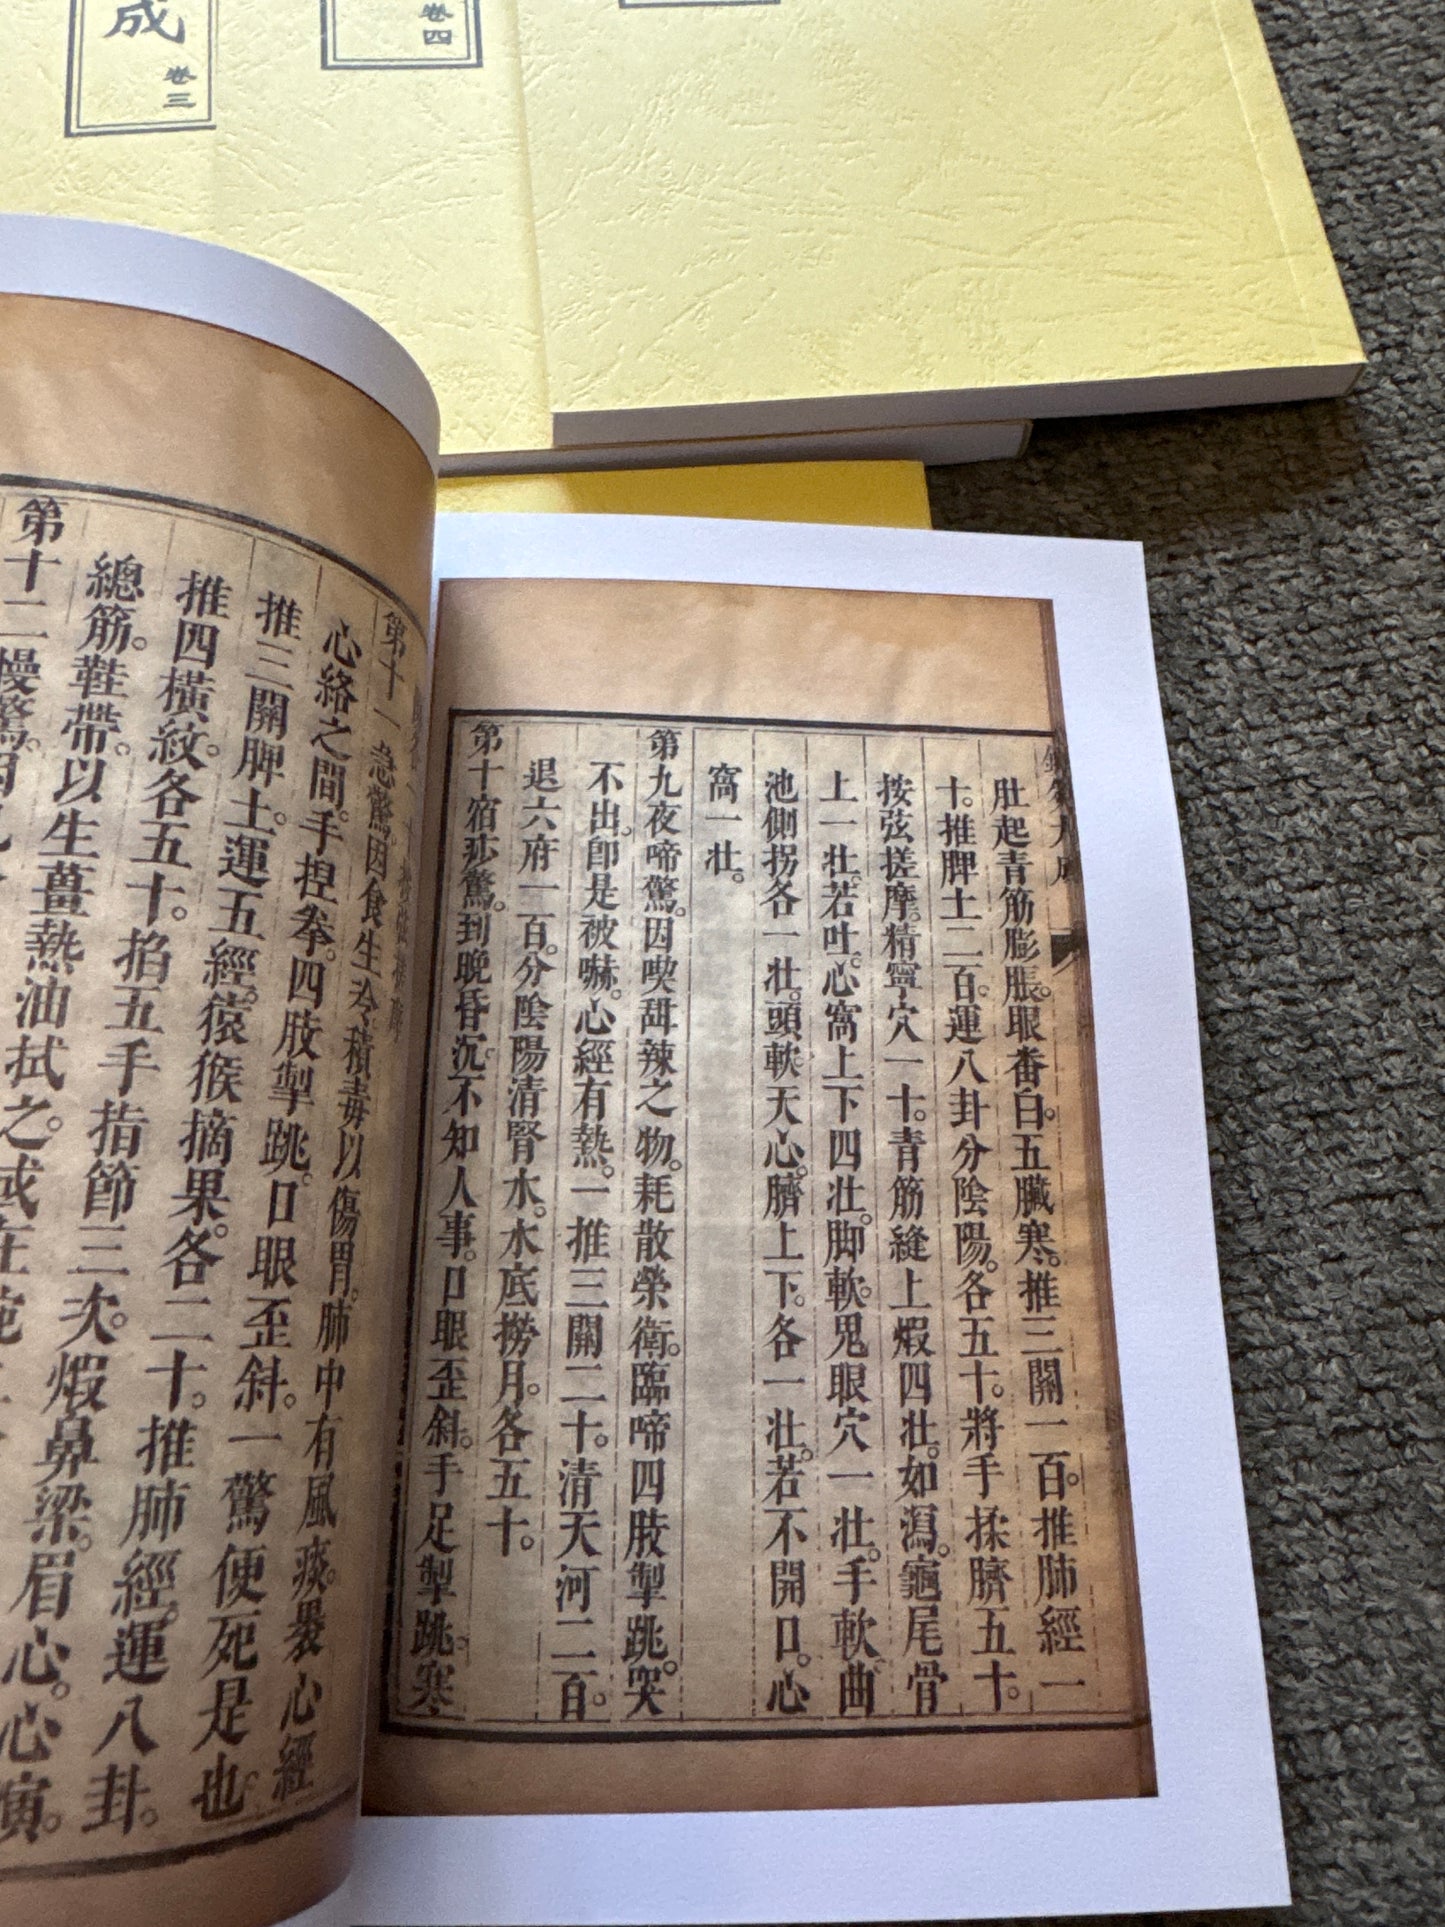 成
卷三
卷四
鍼灸大成
肚起青筋膨脹。眼番白。五臟寒。推三關一百。推肺經一
十。推脾土二百。運八卦分陰陽。各五十。將手揉臍五十。
按弦搓摩。精寧穴一十。青筋縫上煆四壯。如瀉。龜尾骨
上一壯。若吐。心窩上下四壯。脚軟。鬼眼穴一壯。手軟。曲
池側拐各一壯。頭軟。天心。臍上下。各一壯。若不開口。心
窩一壯。
第九夜啼驚。因喫甜辣之物。耗散榮衛。臨啼四肢掣跳。哭
不出。卽是被嚇。心經有熱。一推三關二十。清天河二百。
退六府一百。分陰陽清腎水。水底撈月。各五十。
第十宿痧驚。到晚昏沉。不知人事。口眼歪斜。手足掣跳。寒
第十一急驚。因食生冷積毒以傷胃。肺中有風。痰裹心經
心絡之間。手揑拳。四肢掣跳。口眼歪斜。一驚便死是也
推三關脾土。運五經。猿猴摘果。各二十。推肺經。運八卦。
推四橫紋。各五十。掐五手指節三次。煆鼻梁。眉心。心演。
總筋。鞋帶。以生薑熱油拭之。或在
第十二慢驚。因